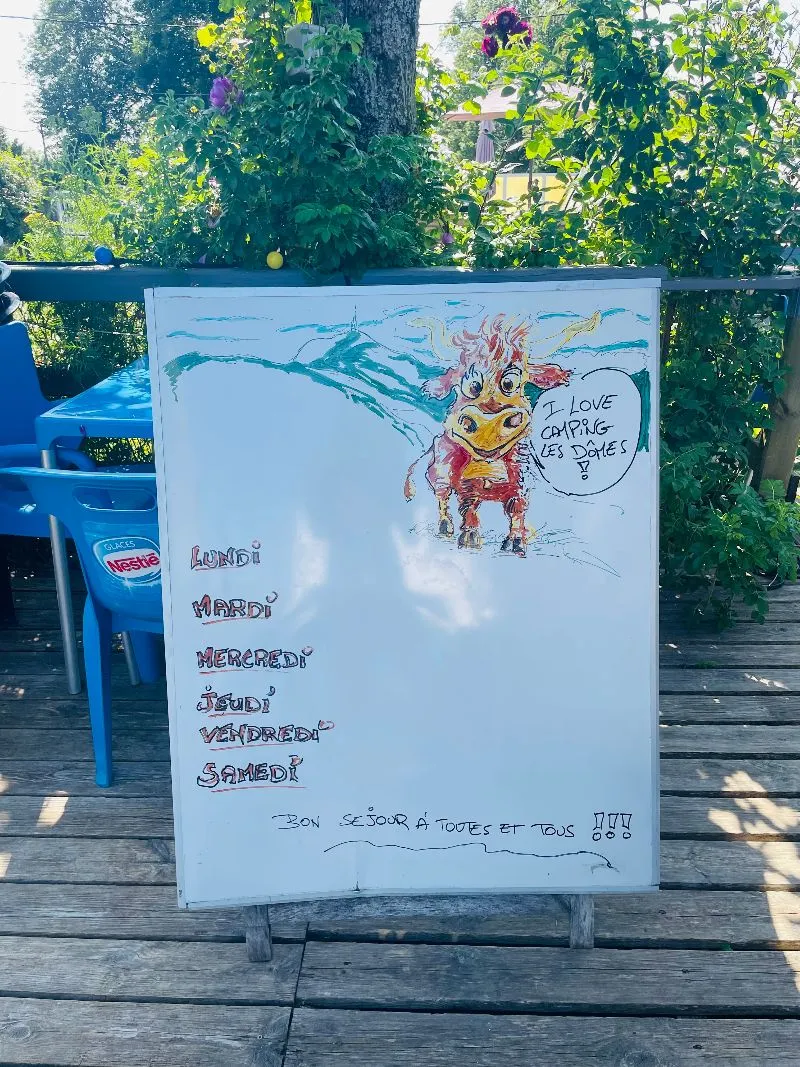 I LOVE
CAMPING
LES DÔMES
!
GLACES
Nestlé
LUNDI
MARDI
MERCREDI
JEUDI
VENDREDI
SAMEDI
BON SEJOUR À TOUTES ET TOUS !!!